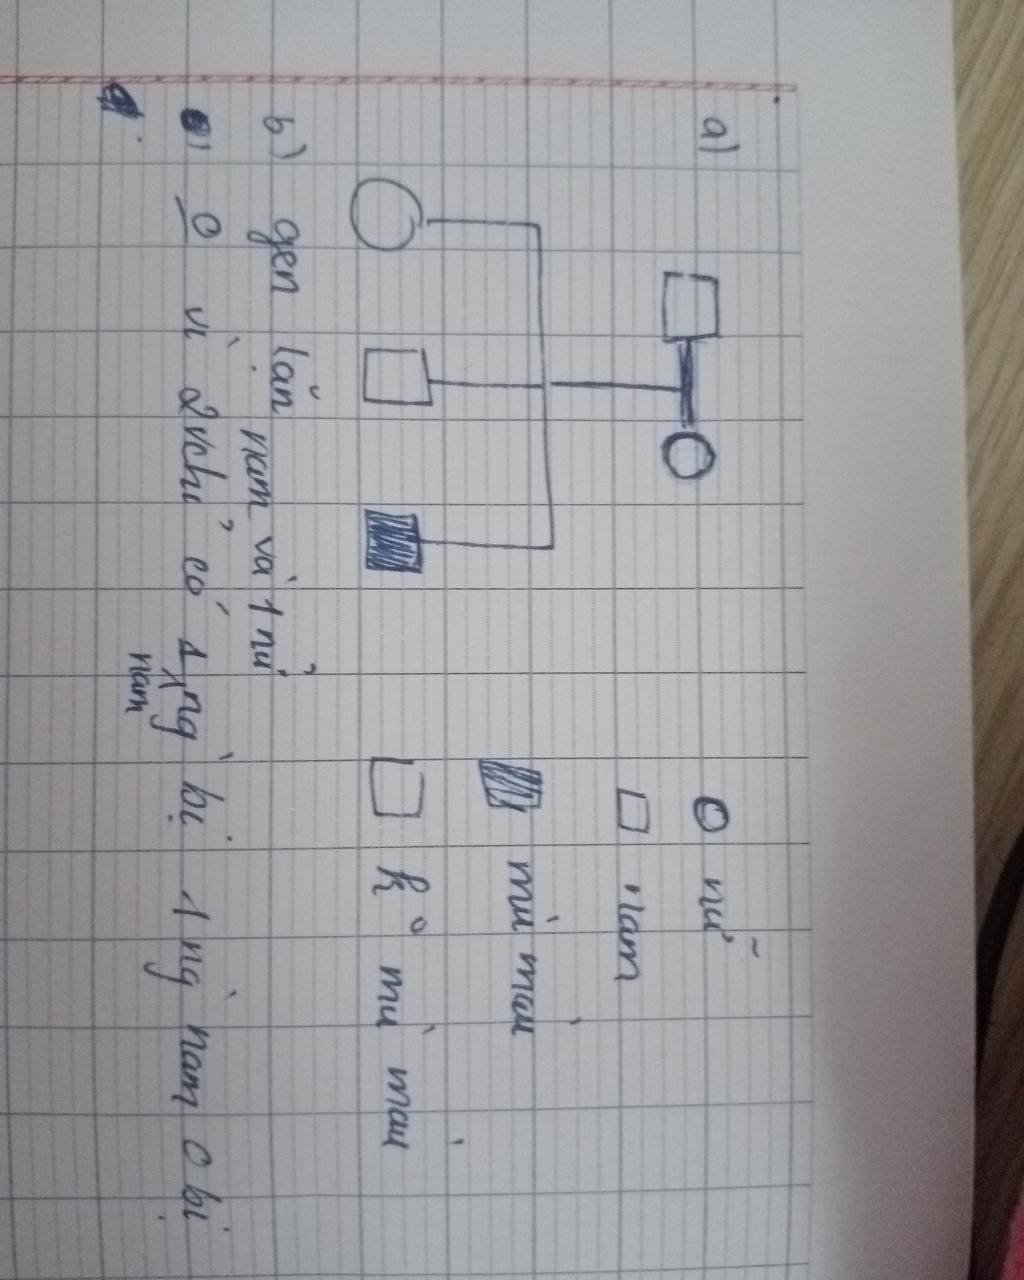 a)
nữ
nam
mù màu
k° mù màu
b) gen lặn
nam và 1 nữ
c) 0 vì 2 vch' có 1 ng` bị 1 ng` nam 0 bị
nam